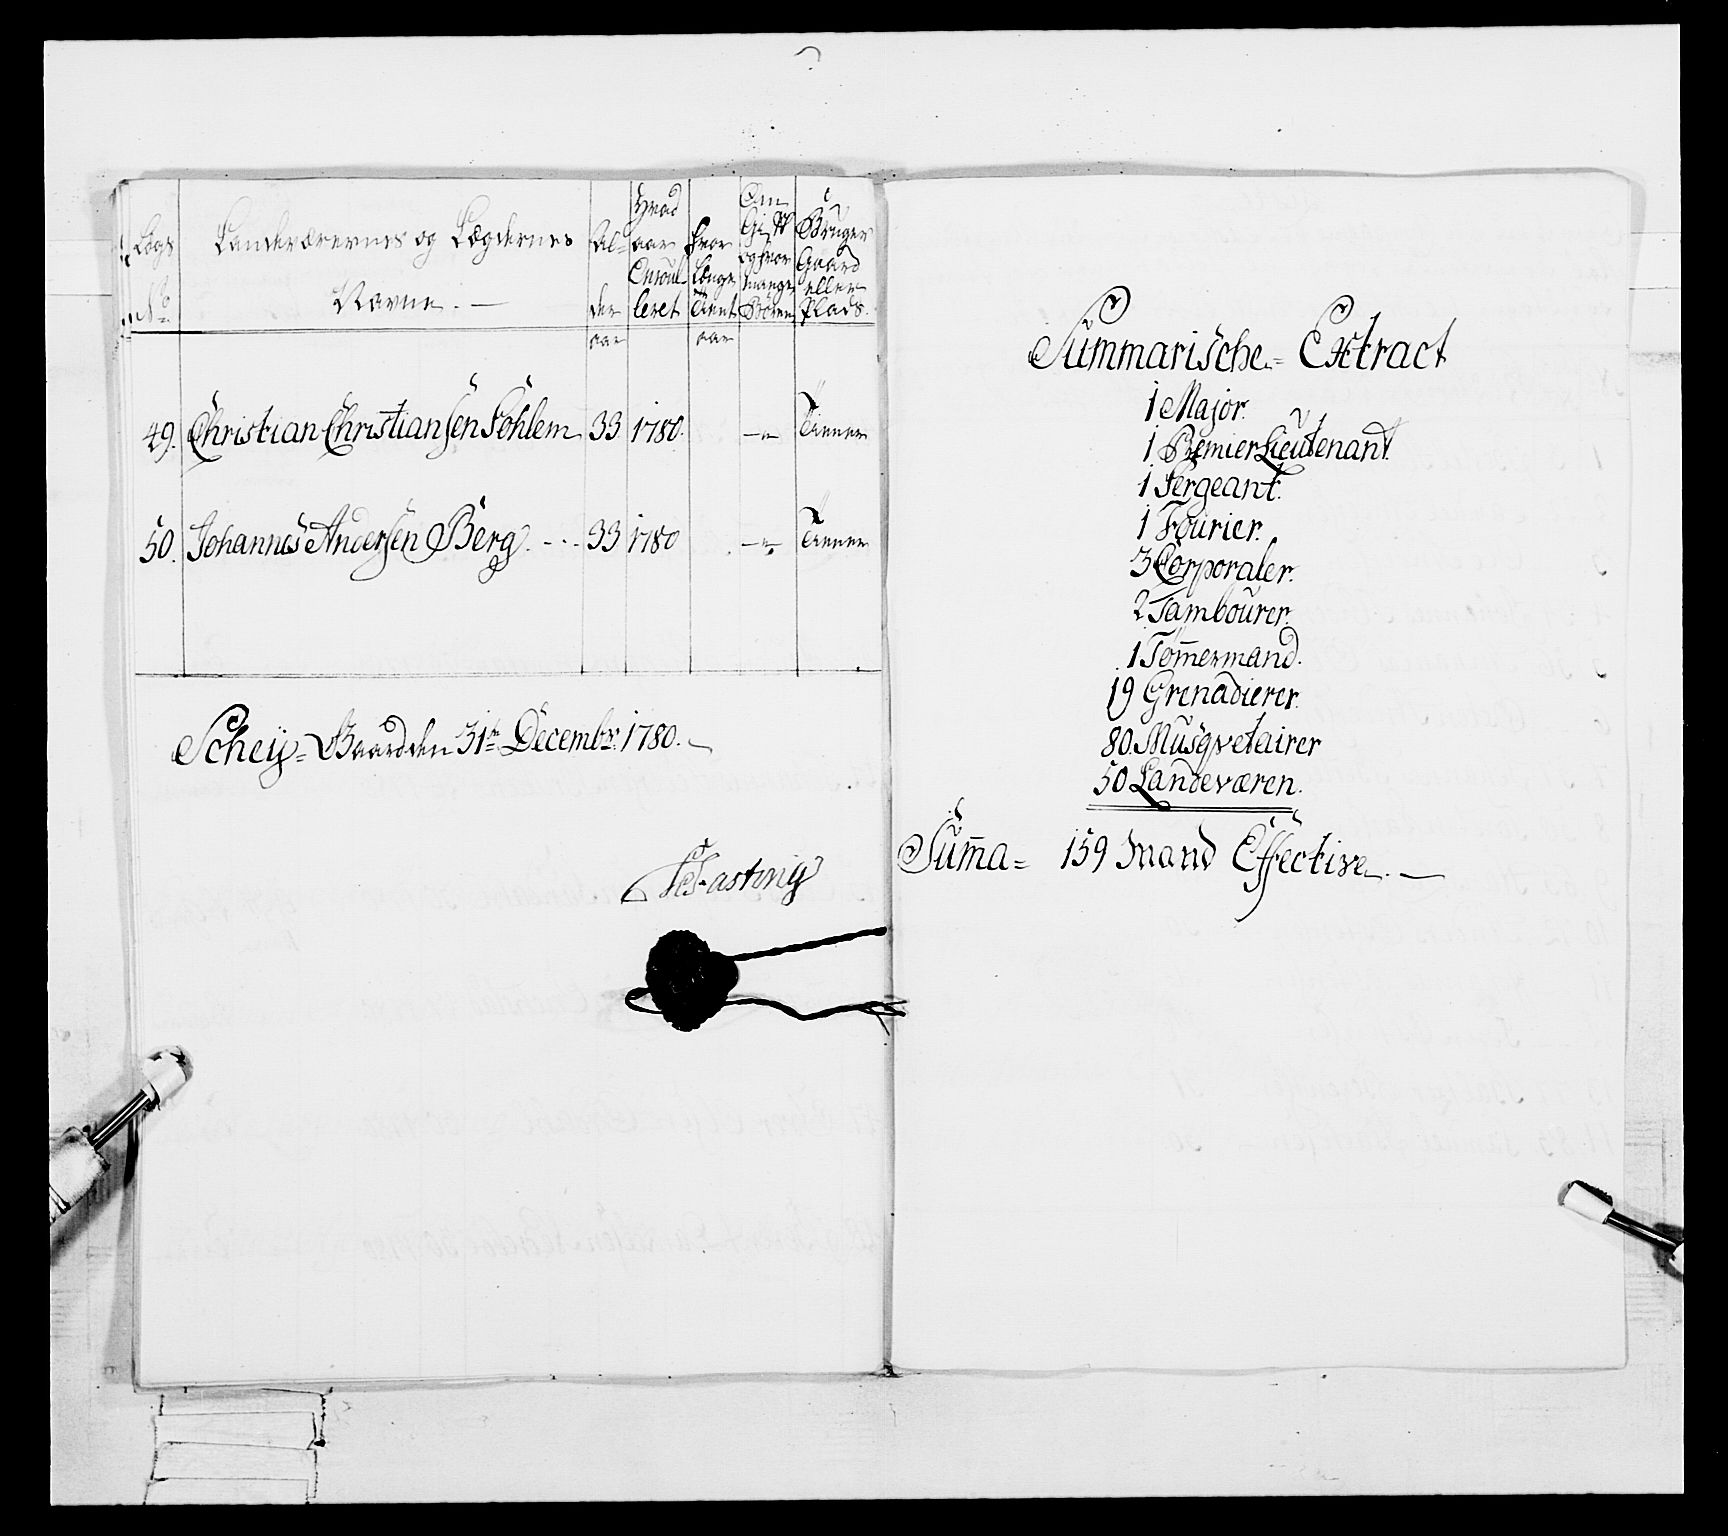 Laegs No | Landeværernes og Lægdernes Navne. | Alder aar | Hvad aar Enroulleret | Hvor Længe tient aar | Om Gift og hvor mange Børn | Bruger Gaard eller Plads.
49. Christian Christiansen Sohlem 33 1780. — Tienner
50. Johannes Andersen Berg. - - - 33 1780 — Tienner
Scheij-Gaard den 31te Decembr. 1780.
Fasting
Summarische-Extract
1 Major.
1 Premier Lieutenant.
1 Sergeant.
1 Fourier.
3 Corporaler.
2 Tambourer.
1 Tømermand.
19 Grenadierer.
80. Musqvetairer
50 Landeværen.
Suma = 159 Mand Effective. —